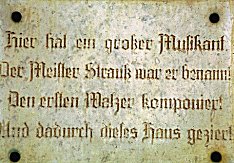 Hier hat ein großer Musikant,
Der Meister Strauß war er benannt
Den ersten Walzer komponiert
Und dadurch dieses Haus geziert